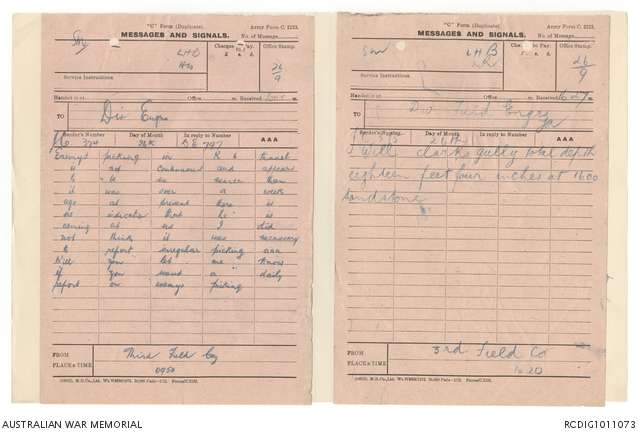 "C" Form (Duplicate). Army Form C. 2123.
MESSAGES AND SIGNALS. No. of Message
Charges to Pay. £ s. d.
Office Stamp.
LHB
26
9
Service Instructions.
Handed in at Office m. Received
TO Div Engrs
Sender's Number Day of Month In reply to Number AAA
26th DE 797
Enemys picking in R 6 tunnel
is not continuous and appears
to be no nearer than
it was over a week
ago at present there is
no indication that he is
coming at us I did
not think it was necessary
to report irregular picking aaa
Will you let me know
if you want a daily
report on enemys picking
FROM Third Field Coy
PLACE & TIME 0950
"C" Form (Duplicate). Army Form C. 2123.
MESSAGES AND SIGNALS. No. of Message
Charges to Pay. £ s. d.
Office Stamp.
LHB
26
9
Service Instructions.
Handed in at Office m. Received 16.27
TO Div Field Engrs
Sender's Number Day of Month In reply to Number AAA
26th
Well clarks gully total depth
eighteen feet four inches at 1600
sandstone
FROM 3rd Field Co
PLACE & TIME
AUSTRALIAN WAR MEMORIAL
RCDIG1011073